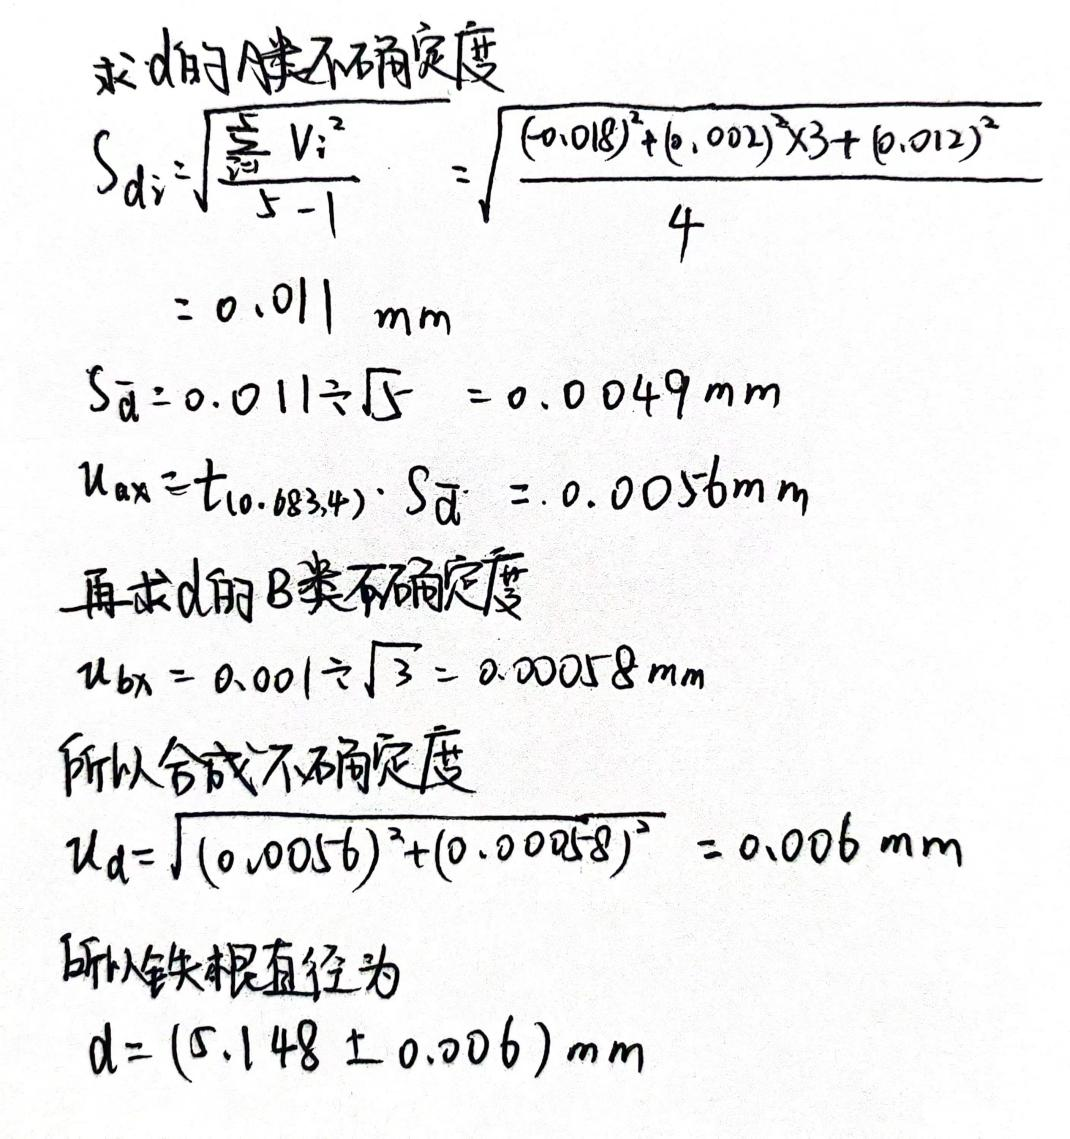 求d的A类不确定度
S_{di} = √(∑_{i=1}^{5} V_i² / (5-1)) = √(((-0.018)²+(0.002)²×3+(0.012)²) / 4)
= 0.011 mm
S_{d̄} = 0.011÷√5 = 0.0049mm
u_{ax} = t_{(0.683,4)}·S_{d̄} = 0.0056mm
再求d的B类不确定度
u_{bx} = 0.001÷√3 = 0.00058mm
所以合成不确定度
u_d = √((0.0056)²+(0.00058)²) = 0.006 mm
所以铁棍直径为
d = (5.148 ± 0.006) mm